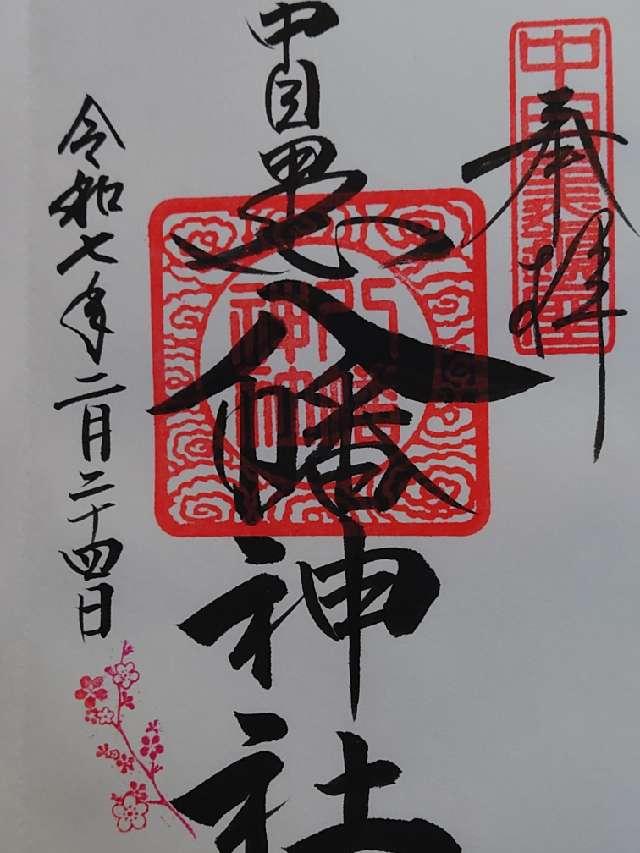 奉拝
中目黒八幡神社
八幡神社
令和七年二月二十四日